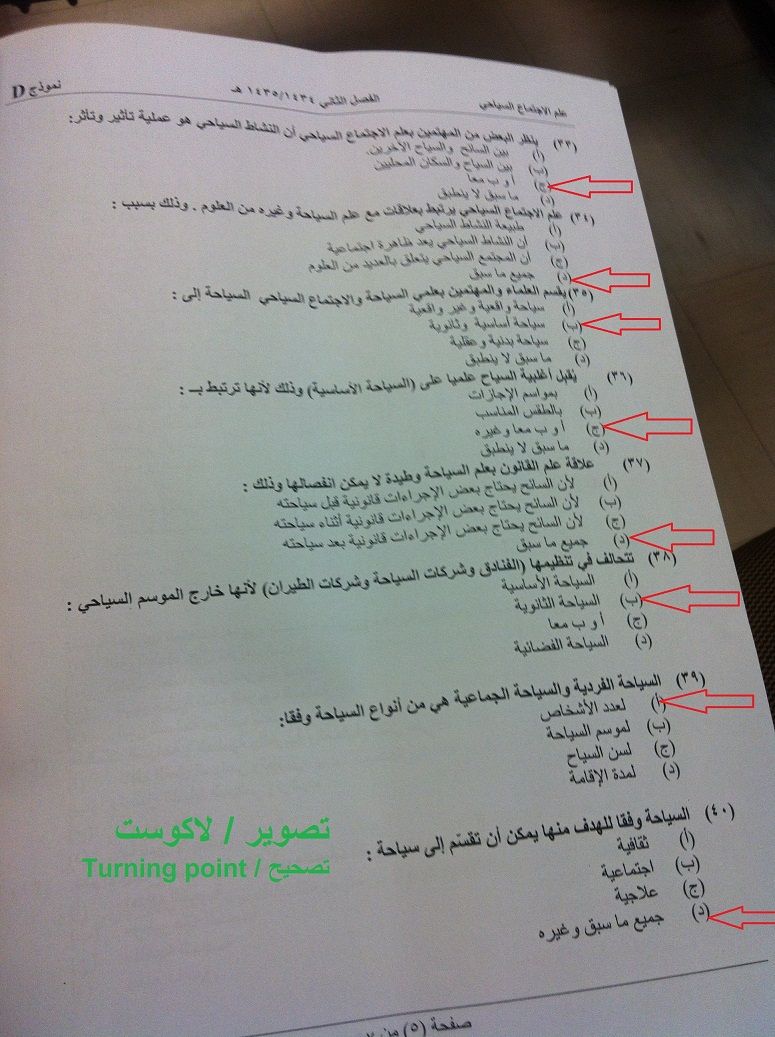 علم الاجتماع السياحي الفصل الثاني ١٤٣٥/١٤٣٤ هـ نموذج D
(٣٣) ينظر البعض من المهتمين بعلم الاجتماع السياحي أن النشاط السياحي هو عملية تأثير وتأثر:
(أ) بين السائح والسياح الآخرين.
(ب) بين السياح والسكان المحليين
(ج) أ و ب معا
(د) ما سبق لا ينطبق
(٣٤) علم الاجتماع السياحي يرتبط بعلاقات مع علم السياحة وغيره من العلوم . وذلك بسبب :
(أ) طبيعة النشاط السياحي
(ب) أن النشاط السياحي يعد ظاهرة اجتماعية
(ج) أن المجتمع السياحي يتعلق بالعديد من العلوم
(د) جميع ما سبق
(٣٥) يقسم العلماء والمهتمين بعلمي السياحة والاجتماع السياحي السياحة إلى :
(أ) سياحة واقعية وغير واقعية
(ب) سياحة أساسية وثانوية
(ج) سياحة بدنية وعقلية
(د) ما سبق لا ينطبق
(٣٦) يقبل أغلبية السياح علميا على (السياحة الأساسية) وذلك لأنها ترتبط بـ :
(أ) بمواسم الإجازات
(ب) بالطقس المناسب
(ج) أ و ب معا وغيره
(د) ما سبق لا ينطبق
(٣٧) علاقة علم القانون بعلم السياحة وطيدة لا يمكن انفصالها وذلك :
(أ) لأن السائح يحتاج بعض الإجراءات قانونية قبل سياحته
(ب) لأن السائح يحتاج بعض الإجراءات قانونية أثناء سياحته
(ج) لأن السائح يحتاج بعض الإجراءات قانونية بعد سياحته
(د) جميع ما سبق
(٣٨) تتحالف في تنظيمها (الفنادق وشركات السياحة وشركات الطيران) لأنها خارج الموسم السياحي :
(أ) السياحة الأساسية
(ب) السياحة الثانوية
(ج) أ و ب معا
(د) السياحة الفضائية
(٣٩) السياحة الفردية والسياحة الجماعية هي من أنواع السياحة وفقا:
(أ) لعدد الأشخاص
(ب) لموسم السياحة
(ج) لسن السياح
(د) لمدة الإقامة
(٤٠) السياحة وفقا للهدف منها يمكن أن تقسّم إلى سياحة :
(أ) ثقافية
(ب) اجتماعية
(ج) علاجية
(د) جميع ما سبق وغيره
تصوير / لاكوست
تصحيح / Turning point
صفحة (٥) من